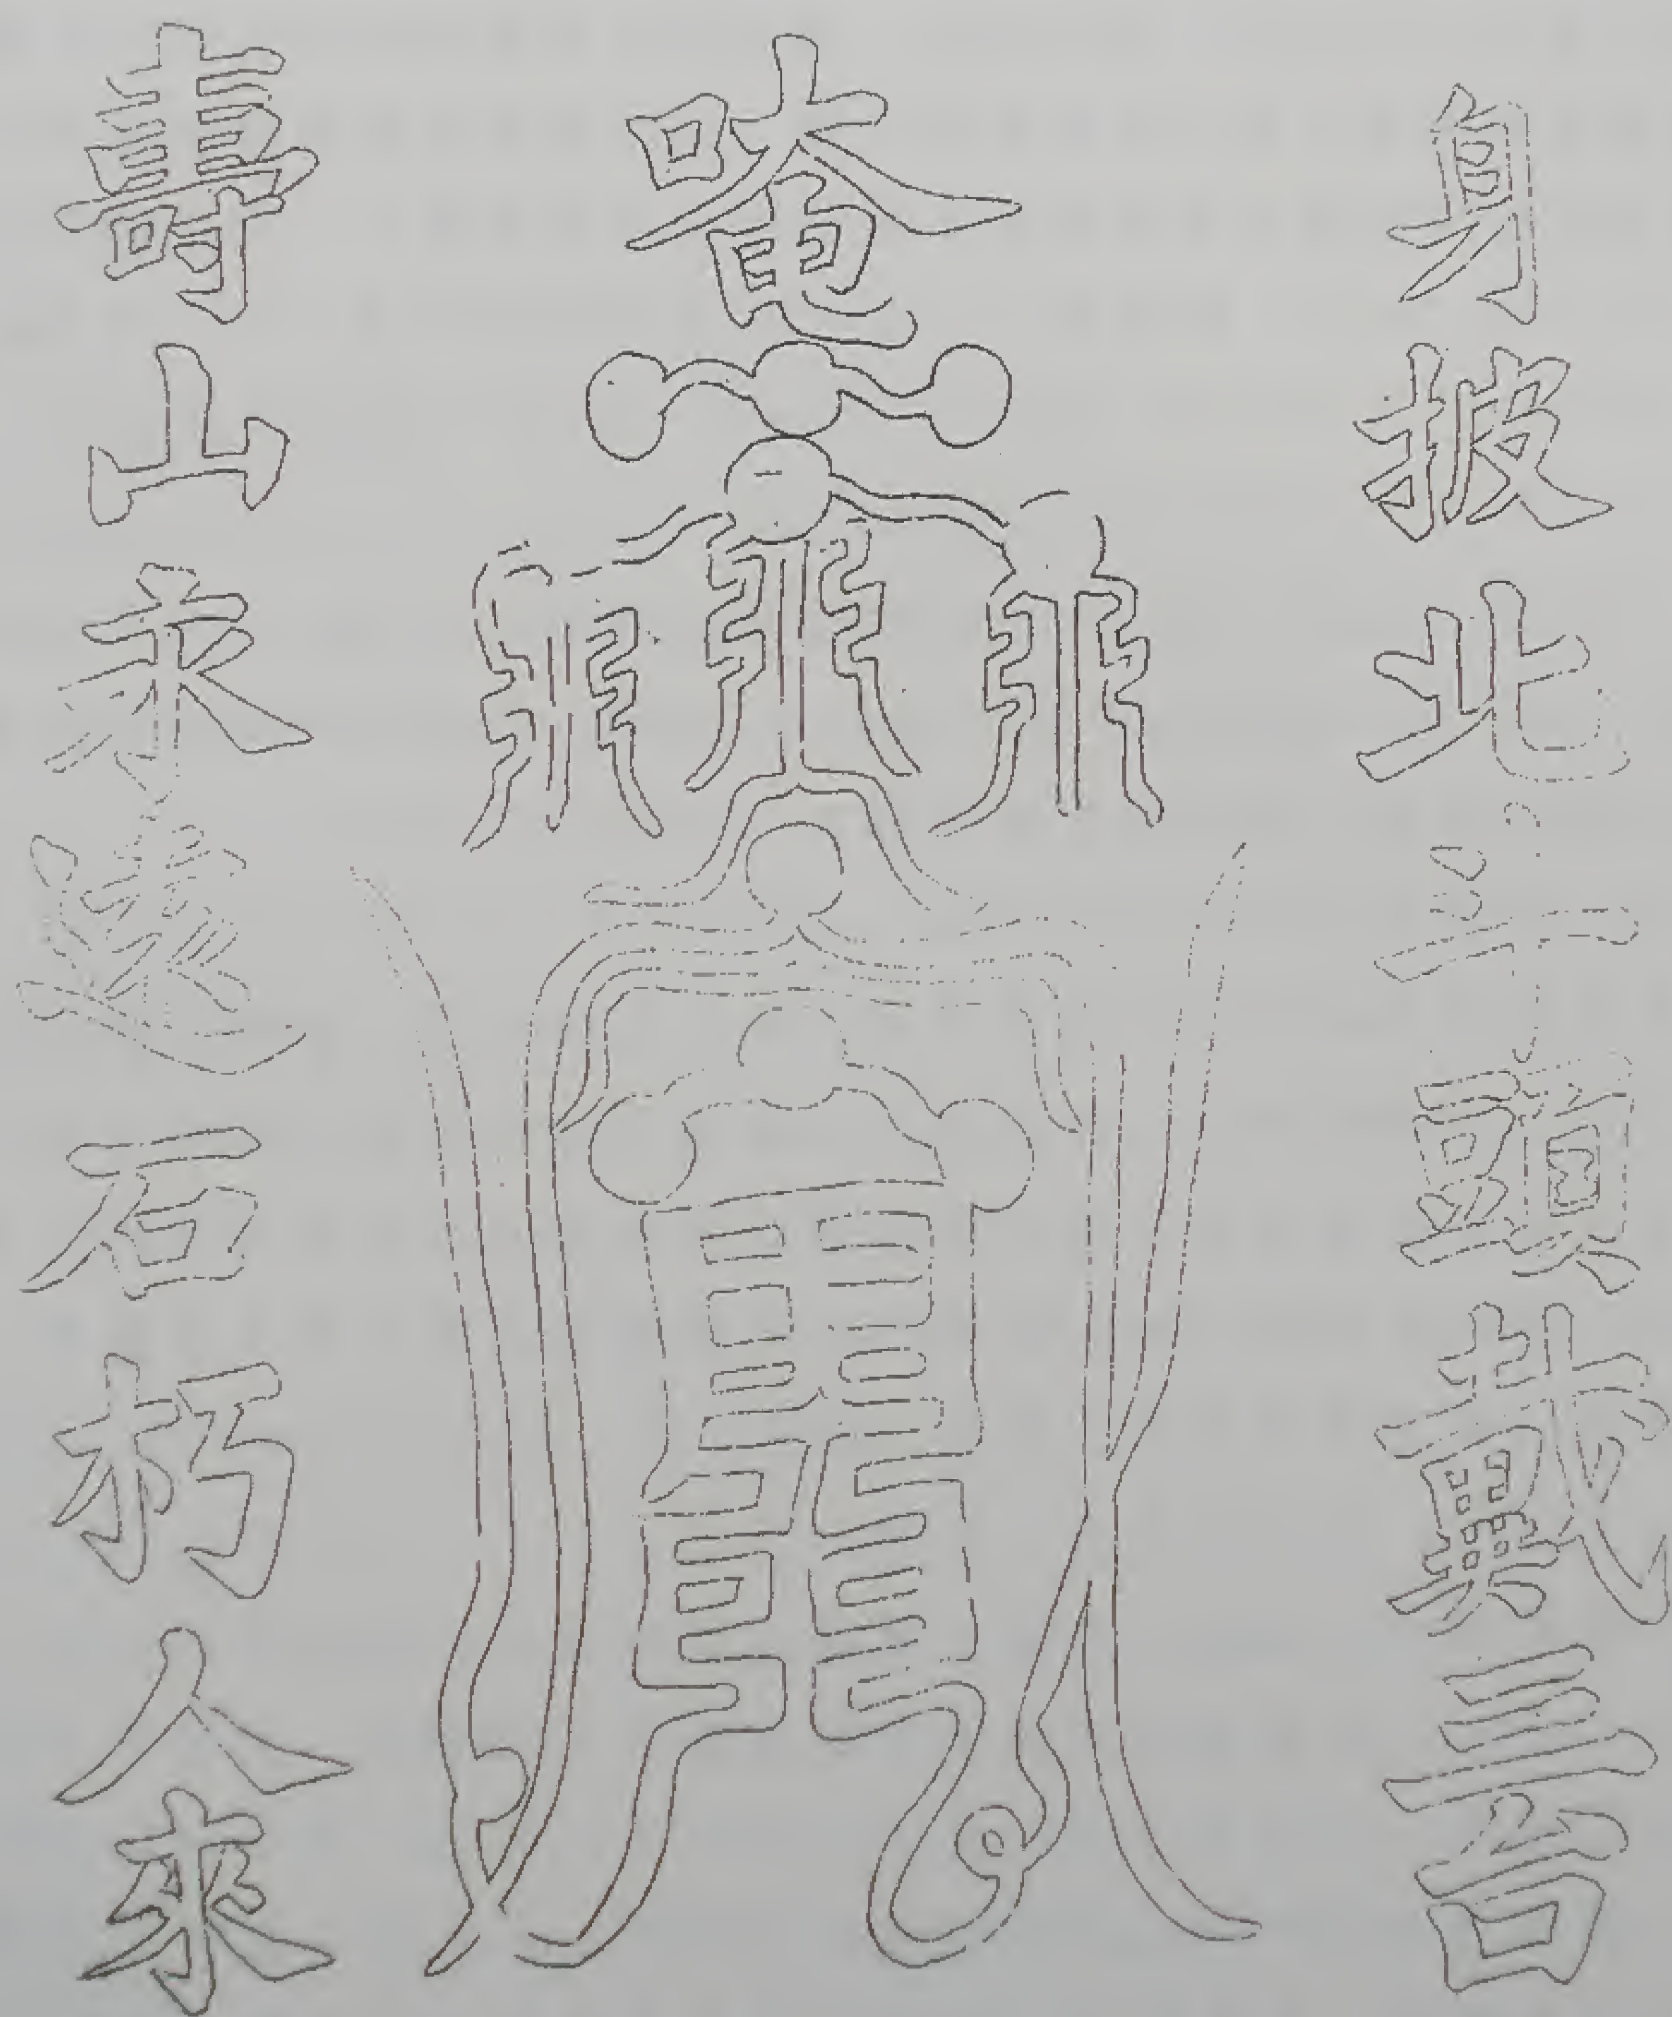 身披北斗頭戴三台
唵
壽山永遠石朽人來